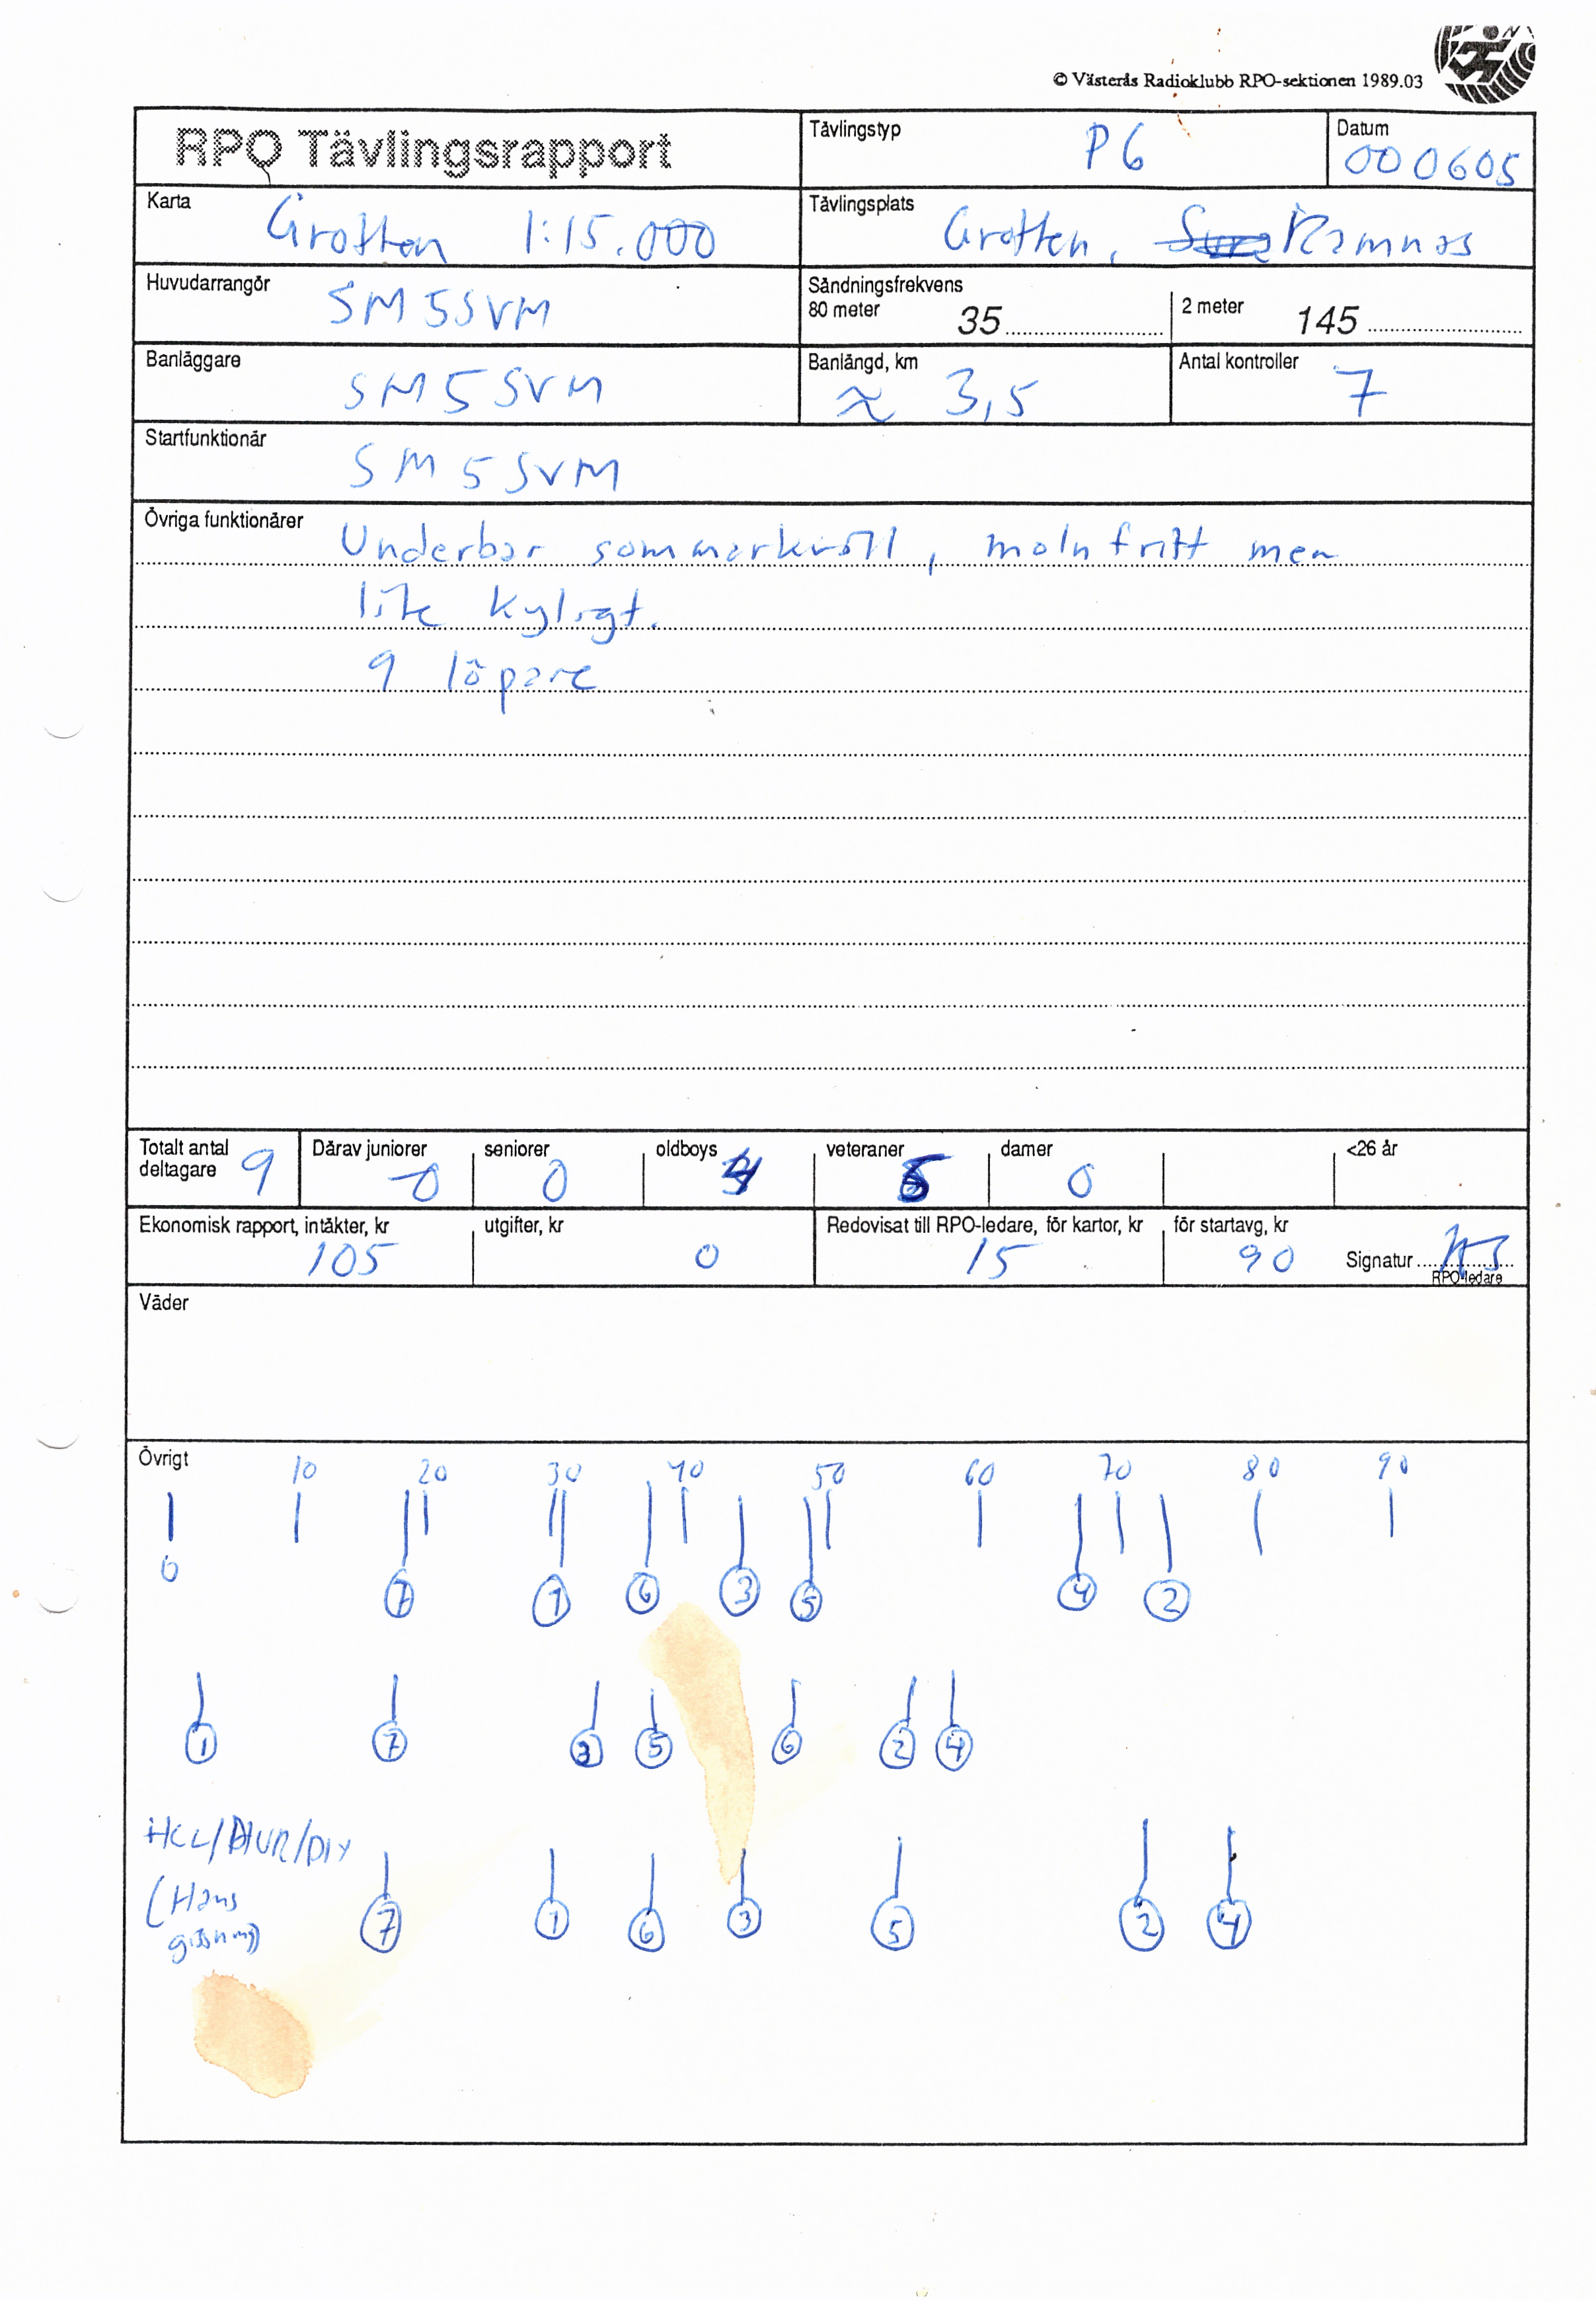 © Västerås Radioklubb RPO-sektionen 1989.03
RPO Tävlingsrapport
Tävlingstyp P6
Datum 000605
Karta Grottan 1:15.000
Tävlingsplats Grotten, Ramnäs
Huvudarrangör SM5SVM
Sändningsfrekvens
80 meter 35
2 meter 145
Banläggare SM5SVM
Banlängd, km ≈ 3,5
Antal kontroller 7
Startfunktionär SM5SVM
Övriga funktionärer Underbar sommarkväll, molnfritt men
lite kyligt.
9 löpare
Totalt antal
deltagare 9
Därav juniorer 0
seniorer 0
oldboys 4
veteraner 5
damer 0
<26 år
Ekonomisk rapport, intäkter, kr 105
utgifter, kr 0
Redovisat till RPO-ledare, för kartor, kr 15
för startavg, kr 90
Signatur
RPO-ledare
Väder
Övrigt
10 20 30 40 50 60 70 80 90
0
7 1 6 3 5 4 2
1 7 3 5 6 2 4
HCL/AUR/DIY
(Hans
gissning)
7 1 6 3 5 2 4